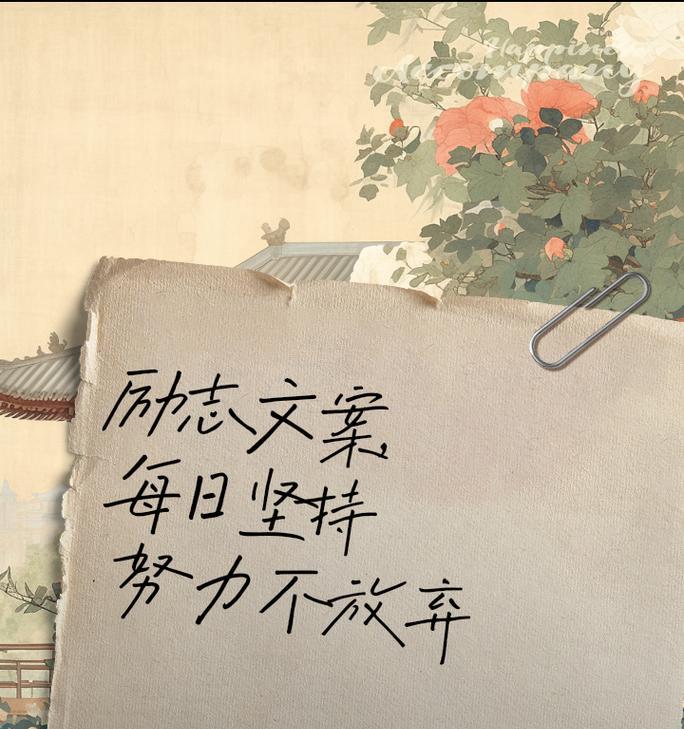 Happiness
Accompany
励志文案
每日坚持
努力不放弃